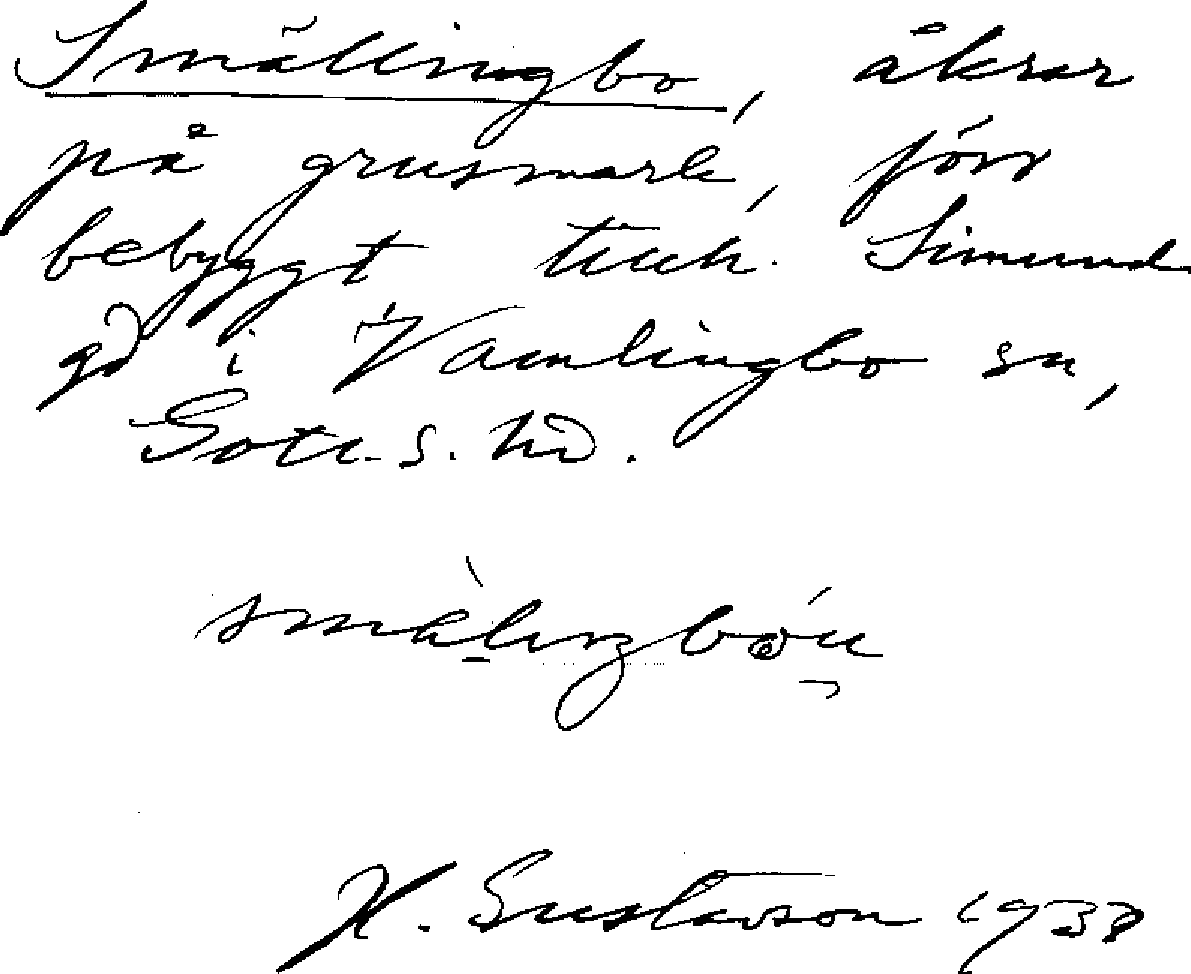 Smällingbo, åkrar
på grusmark, förr
bebyggt tillh. Simund
gd i Vamlingbo sn,
Gotl. s. hd.
H. Gustavson 1938